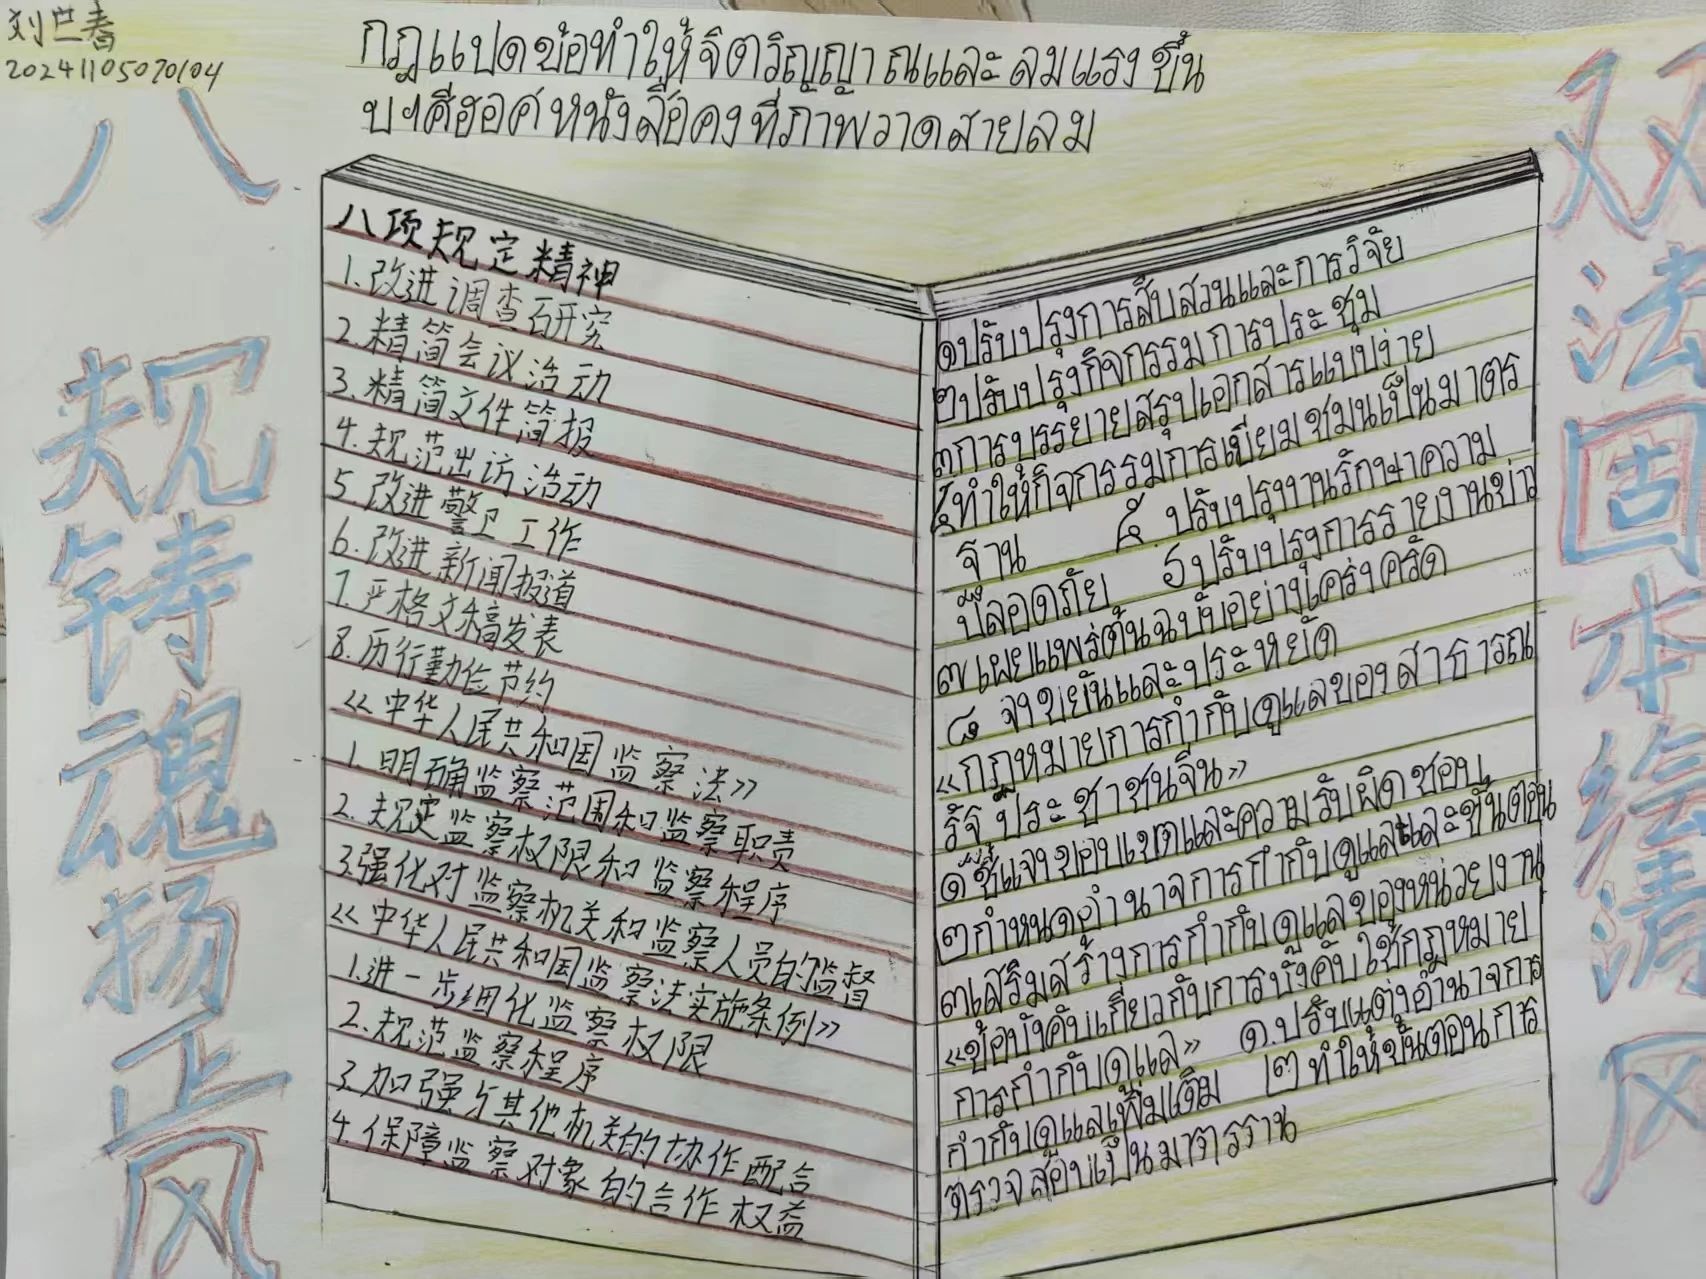 刘芒春
20241105070104
กฎแปดข้อทำให้จิตวิญญาณและลมแรงขึ้น
หนังสือคงที่ภาพวาดสายลม
八规铸魂扬正风
八项规定精神
1.改进调查研究
2.精简会议活动
3.精简文件简报
4.规范出访活动
5.改进警卫工作
6.改进新闻报道
7.严格文稿发表
8.历行勤俭节约
《中华人民共和国监察法》
1.明确监察范围和监察职责
2.规定监察权限和监察程序
3.强化对监察机关和监察人员的监督
《中华人民共和国监察法实施条例》
1.进一步细化监察权限
2.规范监察程序
3.加强与其他机关的协作配合
4.保障监察对象的合作权益
๑ปรับปรุงการสืบสวนและการวิจัย
๒ปรับปรุงกิจกรรมการประชุม
๓การบรรยายสรุปเอกสารแบบง่าย
๔ทำให้กิจกรรมการเยี่ยมชมนเป็นมาตร
ฐาน ๕ ปรับปรุงานรักษาความ
ปลอดภัย ๖ปรับปรุงการรายงานข่าว
๗เผยแพร่ต้นฉบับอย่างเคร่งครัด
๘ จงขยันและประหยัด
«กฎหมายการกำกับดูแลของสาธารณ
รัฐประชาชนจีน»
๑ชี้แจงขอบเขตและความรับผิดชอบ
๒กำหนดอำนาจการกำกับดูแลและขั้นตอน
๓เสริมสร้างการกำกับดูแลของหน่วยงาน
«ข้อบังคับเกี่ยวกับการบังคับใช้กฎหมาย
การกำกับดูแล» ๑.ปรับแต่งอำนาจการ
กำกับดูแลเพิ่มเติม ๒ ทำให้ขั้นตอนการ
ตรวจสอบเป็นมาตรฐาน
双法固本绘清风